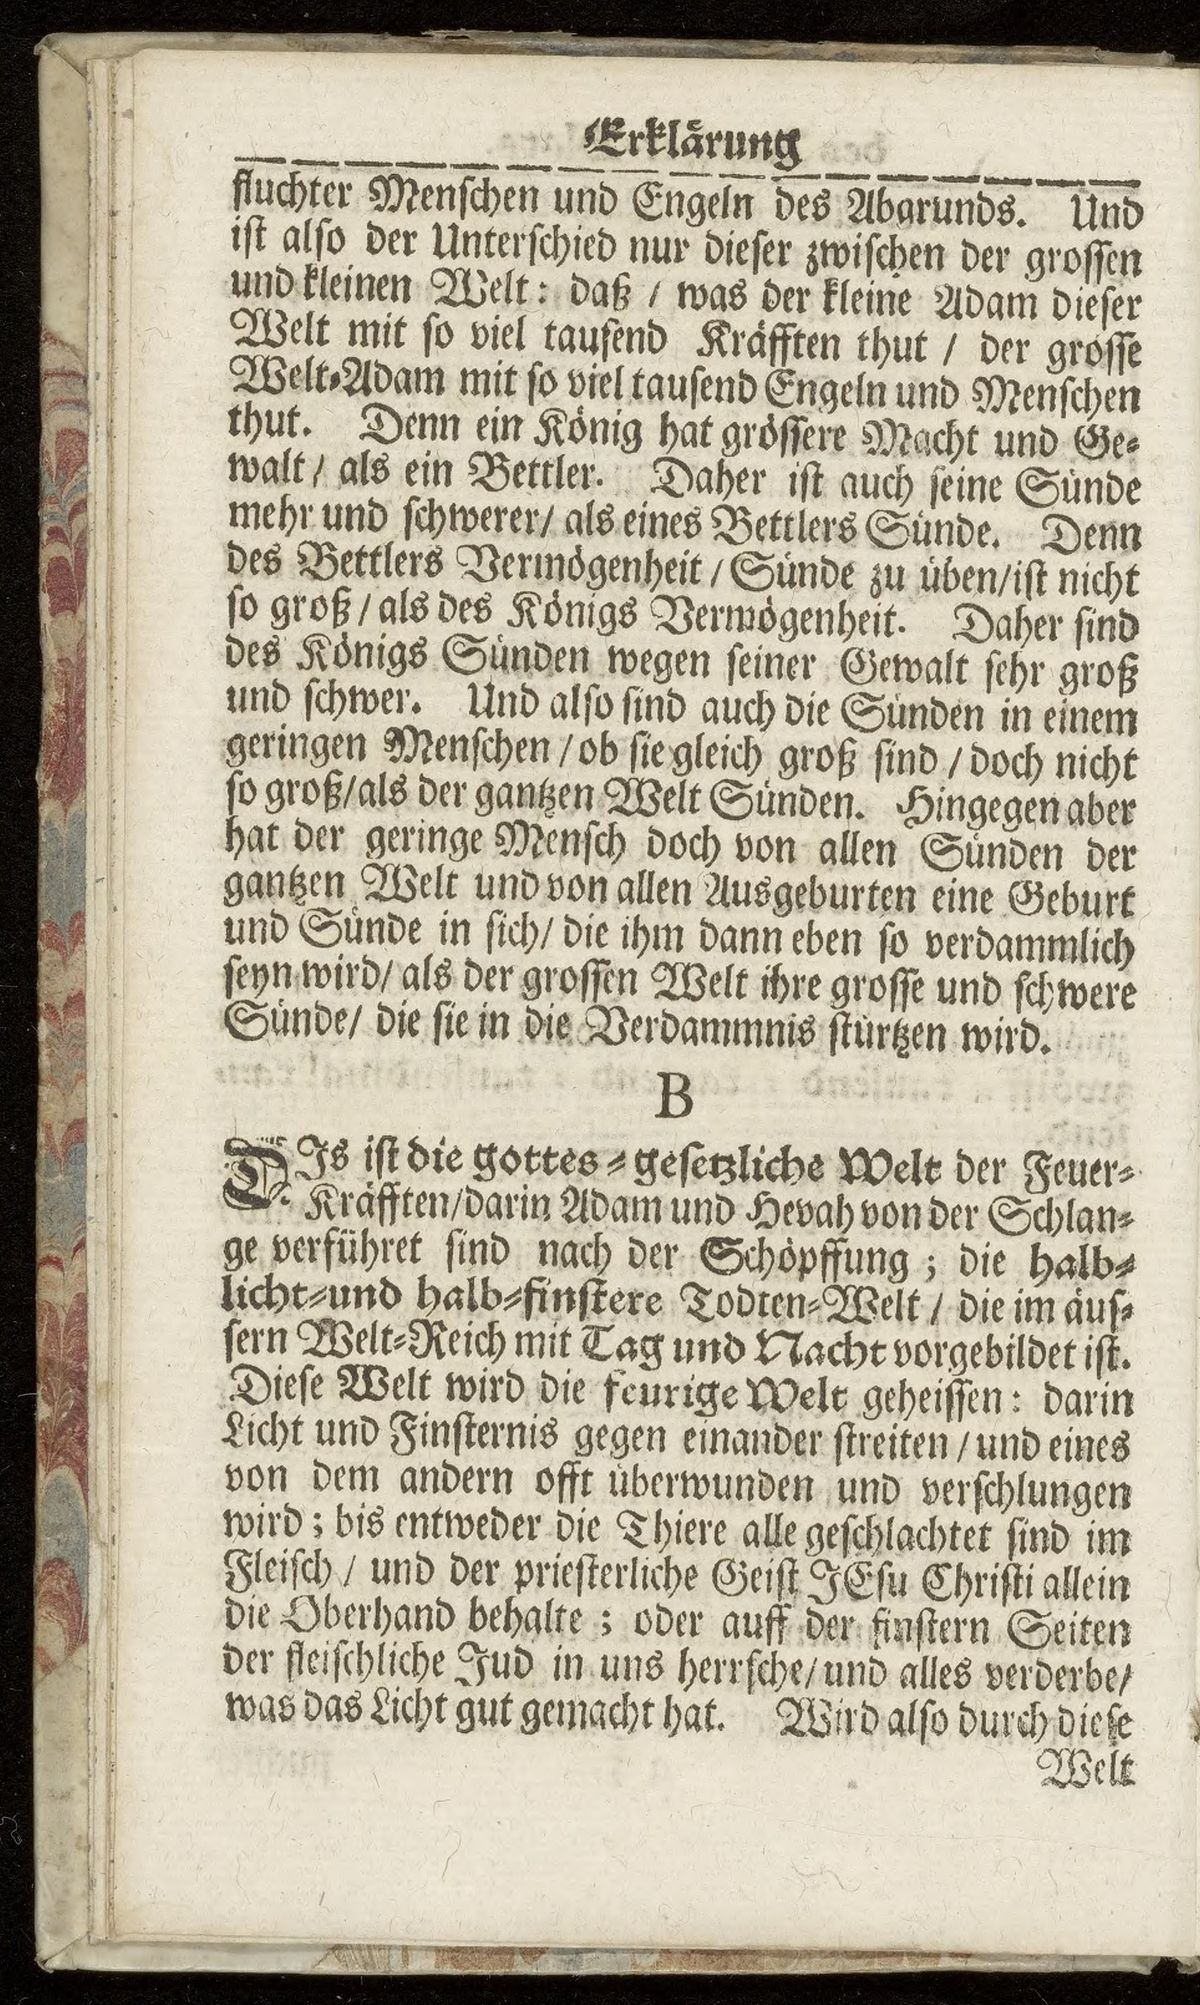 Erklärung
fluchter Menschen und Engeln des Abgrunds. Und
ist also der Unterschied nur dieser zwischen der grossen
und kleinen Welt: daß / was der kleine Adam dieser
Welt mit so viel tausend Kräfften thut / der grosse
Welt-Adam mit so viel tausend Engeln und Menschen
thut. Denn ein König hat grössere Macht und Ge-
walt / als ein Bettler. Daher ist auch seine Sünde
mehr und schwerer / als eines Bettlers Sünde. Denn
des Bettlers Vermögenheit / Sünde zu üben / ist nicht
so groß / als des Königs Vermögenheit. Daher sind
des Königs Sünden wegen seiner Gewalt sehr groß
und schwer. Und also sind auch die Sünden in einem
geringen Menschen / ob sie gleich groß sind / doch nicht
so groß / als der gantzen Welt Sünden. Hingegen aber
hat der geringe Mensch doch von allen Sünden der
gantzen Welt und von allen Ausgeburten eine Geburt
und Sünde in sich / die ihm dann eben so verdammlich
seyn wird / als der grossen Welt ihre grosse und schwere
Sünde / die sie in die Verdammnis stürtzen wird.
B
DIs ist die gottes-gesetzliche Welt der Feuer-
Kräfften / darin Adam und Hevah von der Schlan-
ge verführet sind nach der Schöpffung; die halb-
licht-und halb-finstere Todten-Welt / die im äus-
sern Welt-Reich mit Tag und Nacht vorgebildet ist.
Diese Welt wird die feurige Welt geheissen: darin
Licht und Finsternis gegen einander streiten / und eines
von dem andern offt überwunden und verschlungen
wird; bis entweder die Thiere alle geschlachtet sind im
Fleisch / und der priesterliche Geist JEsu Christi allein
die Oberhand behalte; oder auff der finstern Seiten
der fleischliche Jud in uns herrsche / und alles verderbe /
was das Licht gut gemacht hat. Wird also durch diese
Welt